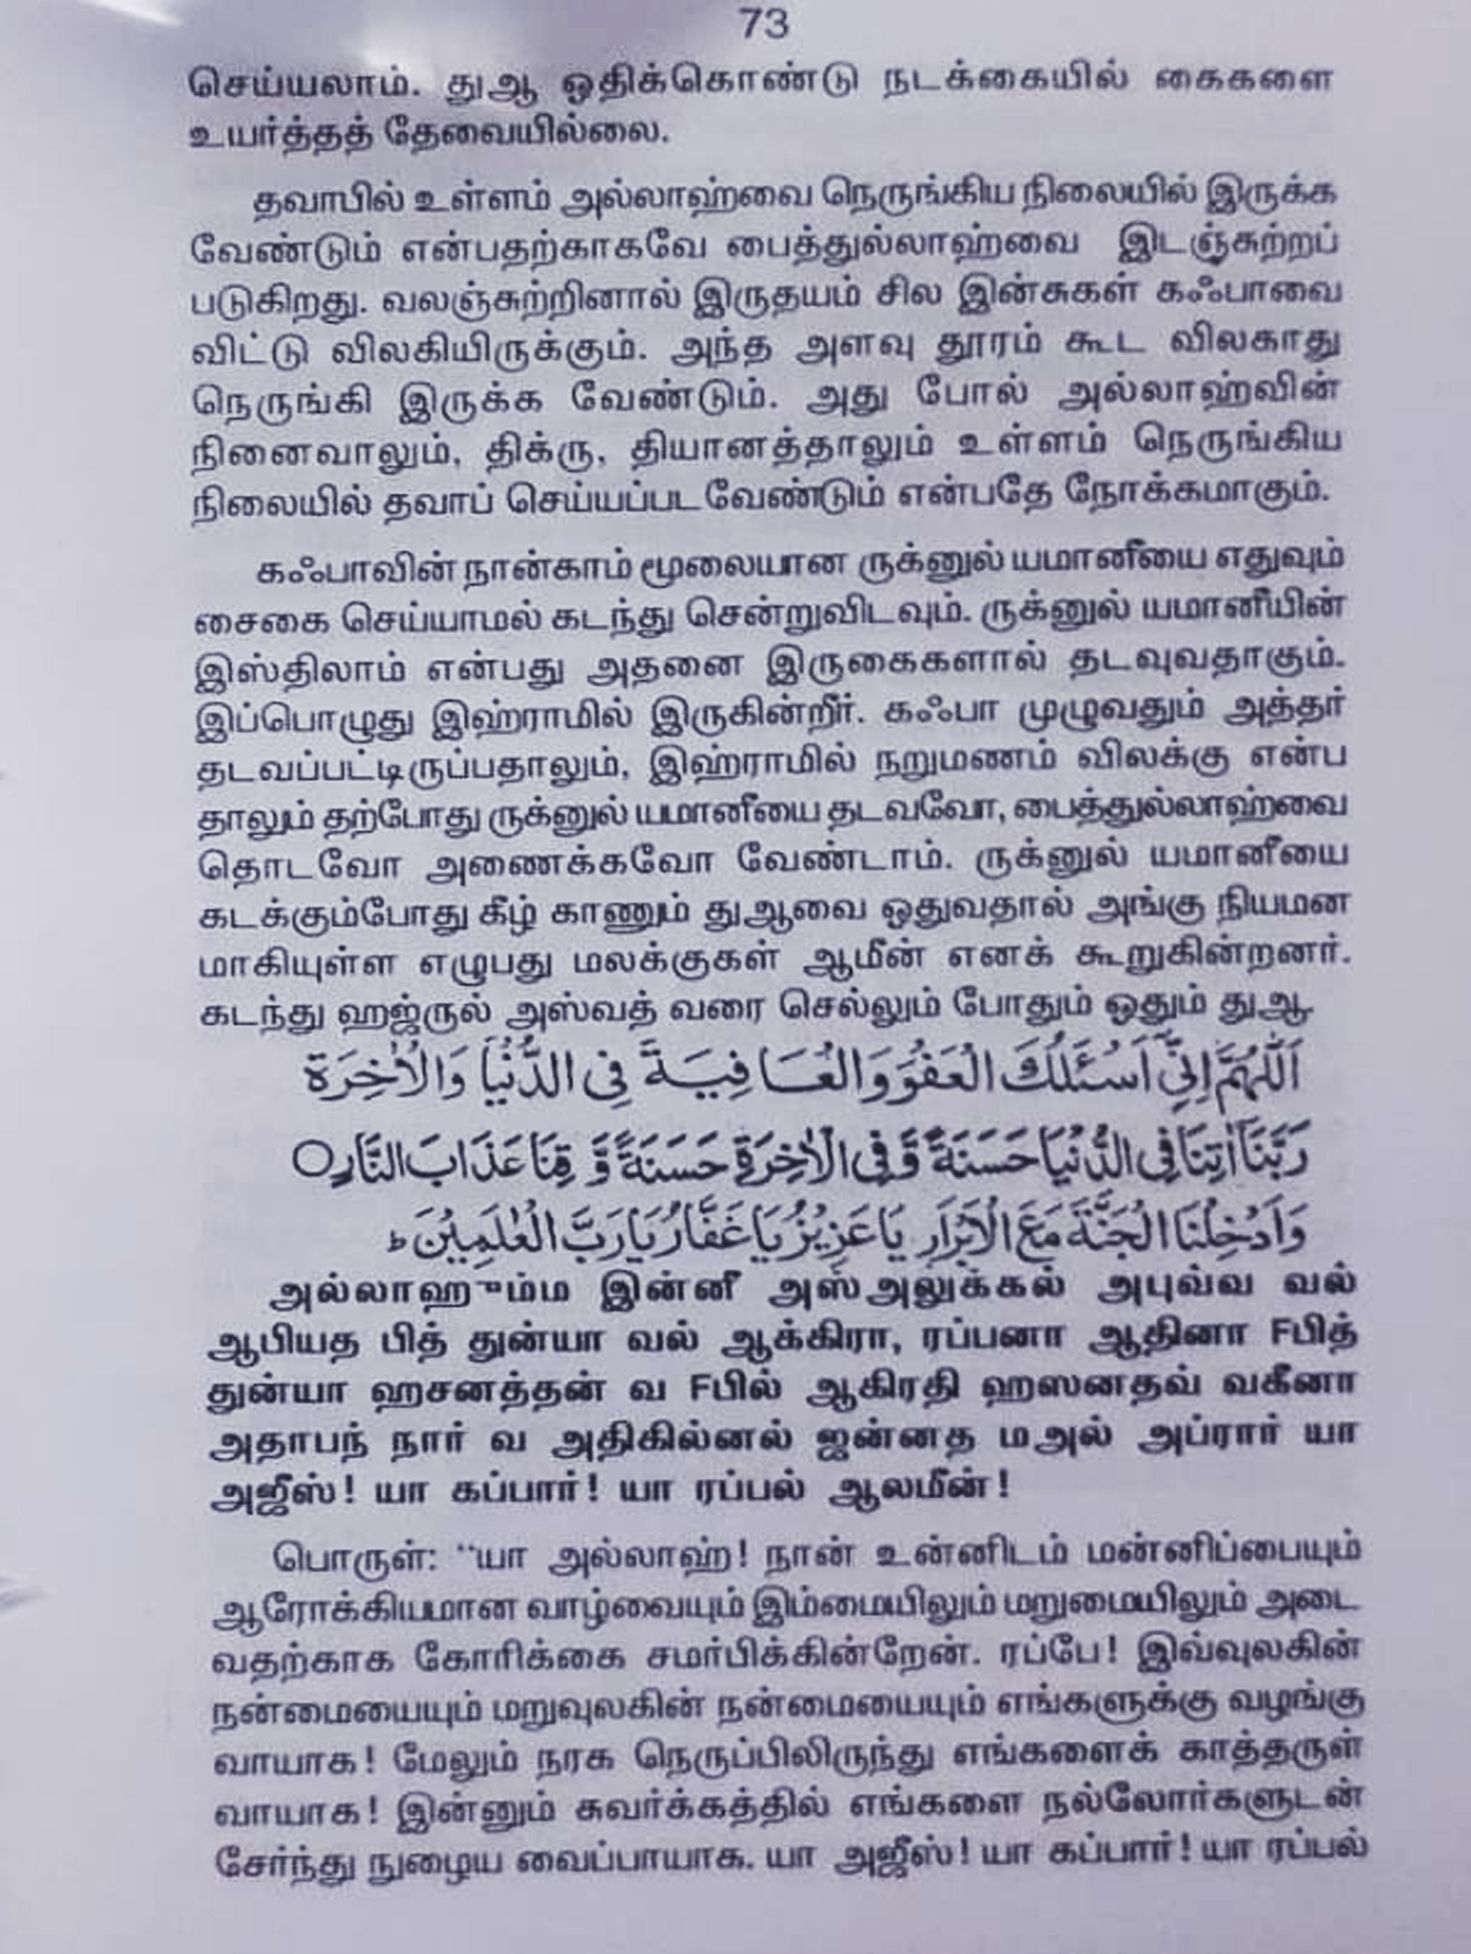 73
செய்யலாம். துஆ ஓதிக்கொண்டு நடக்கையில் கைகளை
உயர்த்தத் தேவையில்லை.
தவாபில் உள்ளம் அல்லாஹ்வை நெருங்கிய நிலையில் இருக்க
வேண்டும் என்பதற்காகவே பைத்துல்லாஹ்வை இடஞ்சுற்றப்
படுகிறது. வலஞ்சுற்றினால் இருதயம் சில இன்சுகள் கஃபாவை
விட்டு விலகியிருக்கும். அந்த அளவு தூரம் கூட விலகாது
நெருங்கி இருக்க வேண்டும். அது போல் அல்லாஹ்வின்
நினைவாலும், திக்ரு, தியானத்தாலும் உள்ளம் நெருங்கிய
நிலையில் தவாப் செய்யப்படவேண்டும் என்பதே நோக்கமாகும்.
கஃபாவின் நான்காம் மூலையான ருக்னுல் யமானீயை எதுவும்
சைகை செய்யாமல் கடந்து சென்றுவிடவும். ருக்னுல் யமானீயின்
இஸ்திலாம் என்பது அதனை இருகைகளால் தடவுவதாகும்.
இப்பொழுது இஹ்ராமில் இருகின்றீர். கஃபா முழுவதும் அத்தர்
தடவப்பட்டிருப்பதாலும், இஹ்ராமில் நறுமணம் விலக்கு என்ப
தாலும் தற்போது ருக்னுல் யமானீயை தடவவோ, பைத்துல்லாஹ்வை
தொடவோ அணைக்கவோ வேண்டாம். ருக்னுல் யமானீயை
கடக்கும்போது கீழ் காணும் துஆவை ஓதுவதால் அங்கு நியமன
மாகியுள்ள எழுபது மலக்குகள் ஆமீன் எனக் கூறுகின்றனர்.
கடந்து ஹஜ்ருல் அஸ்வத் வரை செல்லும் போதும் ஓதும் துஆ
اَللّٰهُمَّ اِنِّيْٓ اَسْئَلُكَ الْعَفْوَ وَالْعَافِيَةَ فِى الدُّنْيَا وَالْاٰخِرَةِ
رَبَّنَآ اٰتِنَا فِى الدُّنْيَا حَسَنَةً وَّفِى الْاٰخِرَةِ حَسَنَةً وَّ قِنَا عَذَابَ النَّارِ ○
وَاَدْخِلْنَا الْجَنَّةَ مَعَ الْاَبْرَارِ يَا عَزِيْزُ يَا غَفَّارُ يَا رَبَّ الْعٰلَمِيْنَ ط
அல்லாஹும்ம இன்னீ அஸ்அலுக்கல் அபுவ்வ வல்
ஆபியத பித் துன்யா வல் ஆக்கிரா, ரப்பனா ஆதினா Fபித்
துன்யா ஹசனத்தன் வ Fபில் ஆகிரதி ஹஸனதவ் வகீனா
அதாபந் நார் வ அதிகில்னல் ஜன்னத மஅல் அப்ரார் யா
அஜீஸ்! யா கப்பார்! யா ரப்பல் ஆலமீன்!
பொருள்: “யா அல்லாஹ்! நான் உன்னிடம் மன்னிப்பையும்
ஆரோக்கியமான வாழ்வையும் இம்மையிலும் மறுமையிலும் அடை
வதற்காக கோரிக்கை சமர்பிக்கின்றேன். ரப்பே! இவ்வுலகின்
நன்மையையும் மறுவுலகின் நன்மையையும் எங்களுக்கு வழங்கு
வாயாக! மேலும் நரக நெருப்பிலிருந்து எங்களைக் காத்தருள்
வாயாக! இன்னும் சுவர்க்கத்தில் எங்களை நல்லோர்களுடன்
சேர்ந்து நுழைய வைப்பாயாக. யா அஜீஸ்! யா கப்பார்! யா ரப்பல்